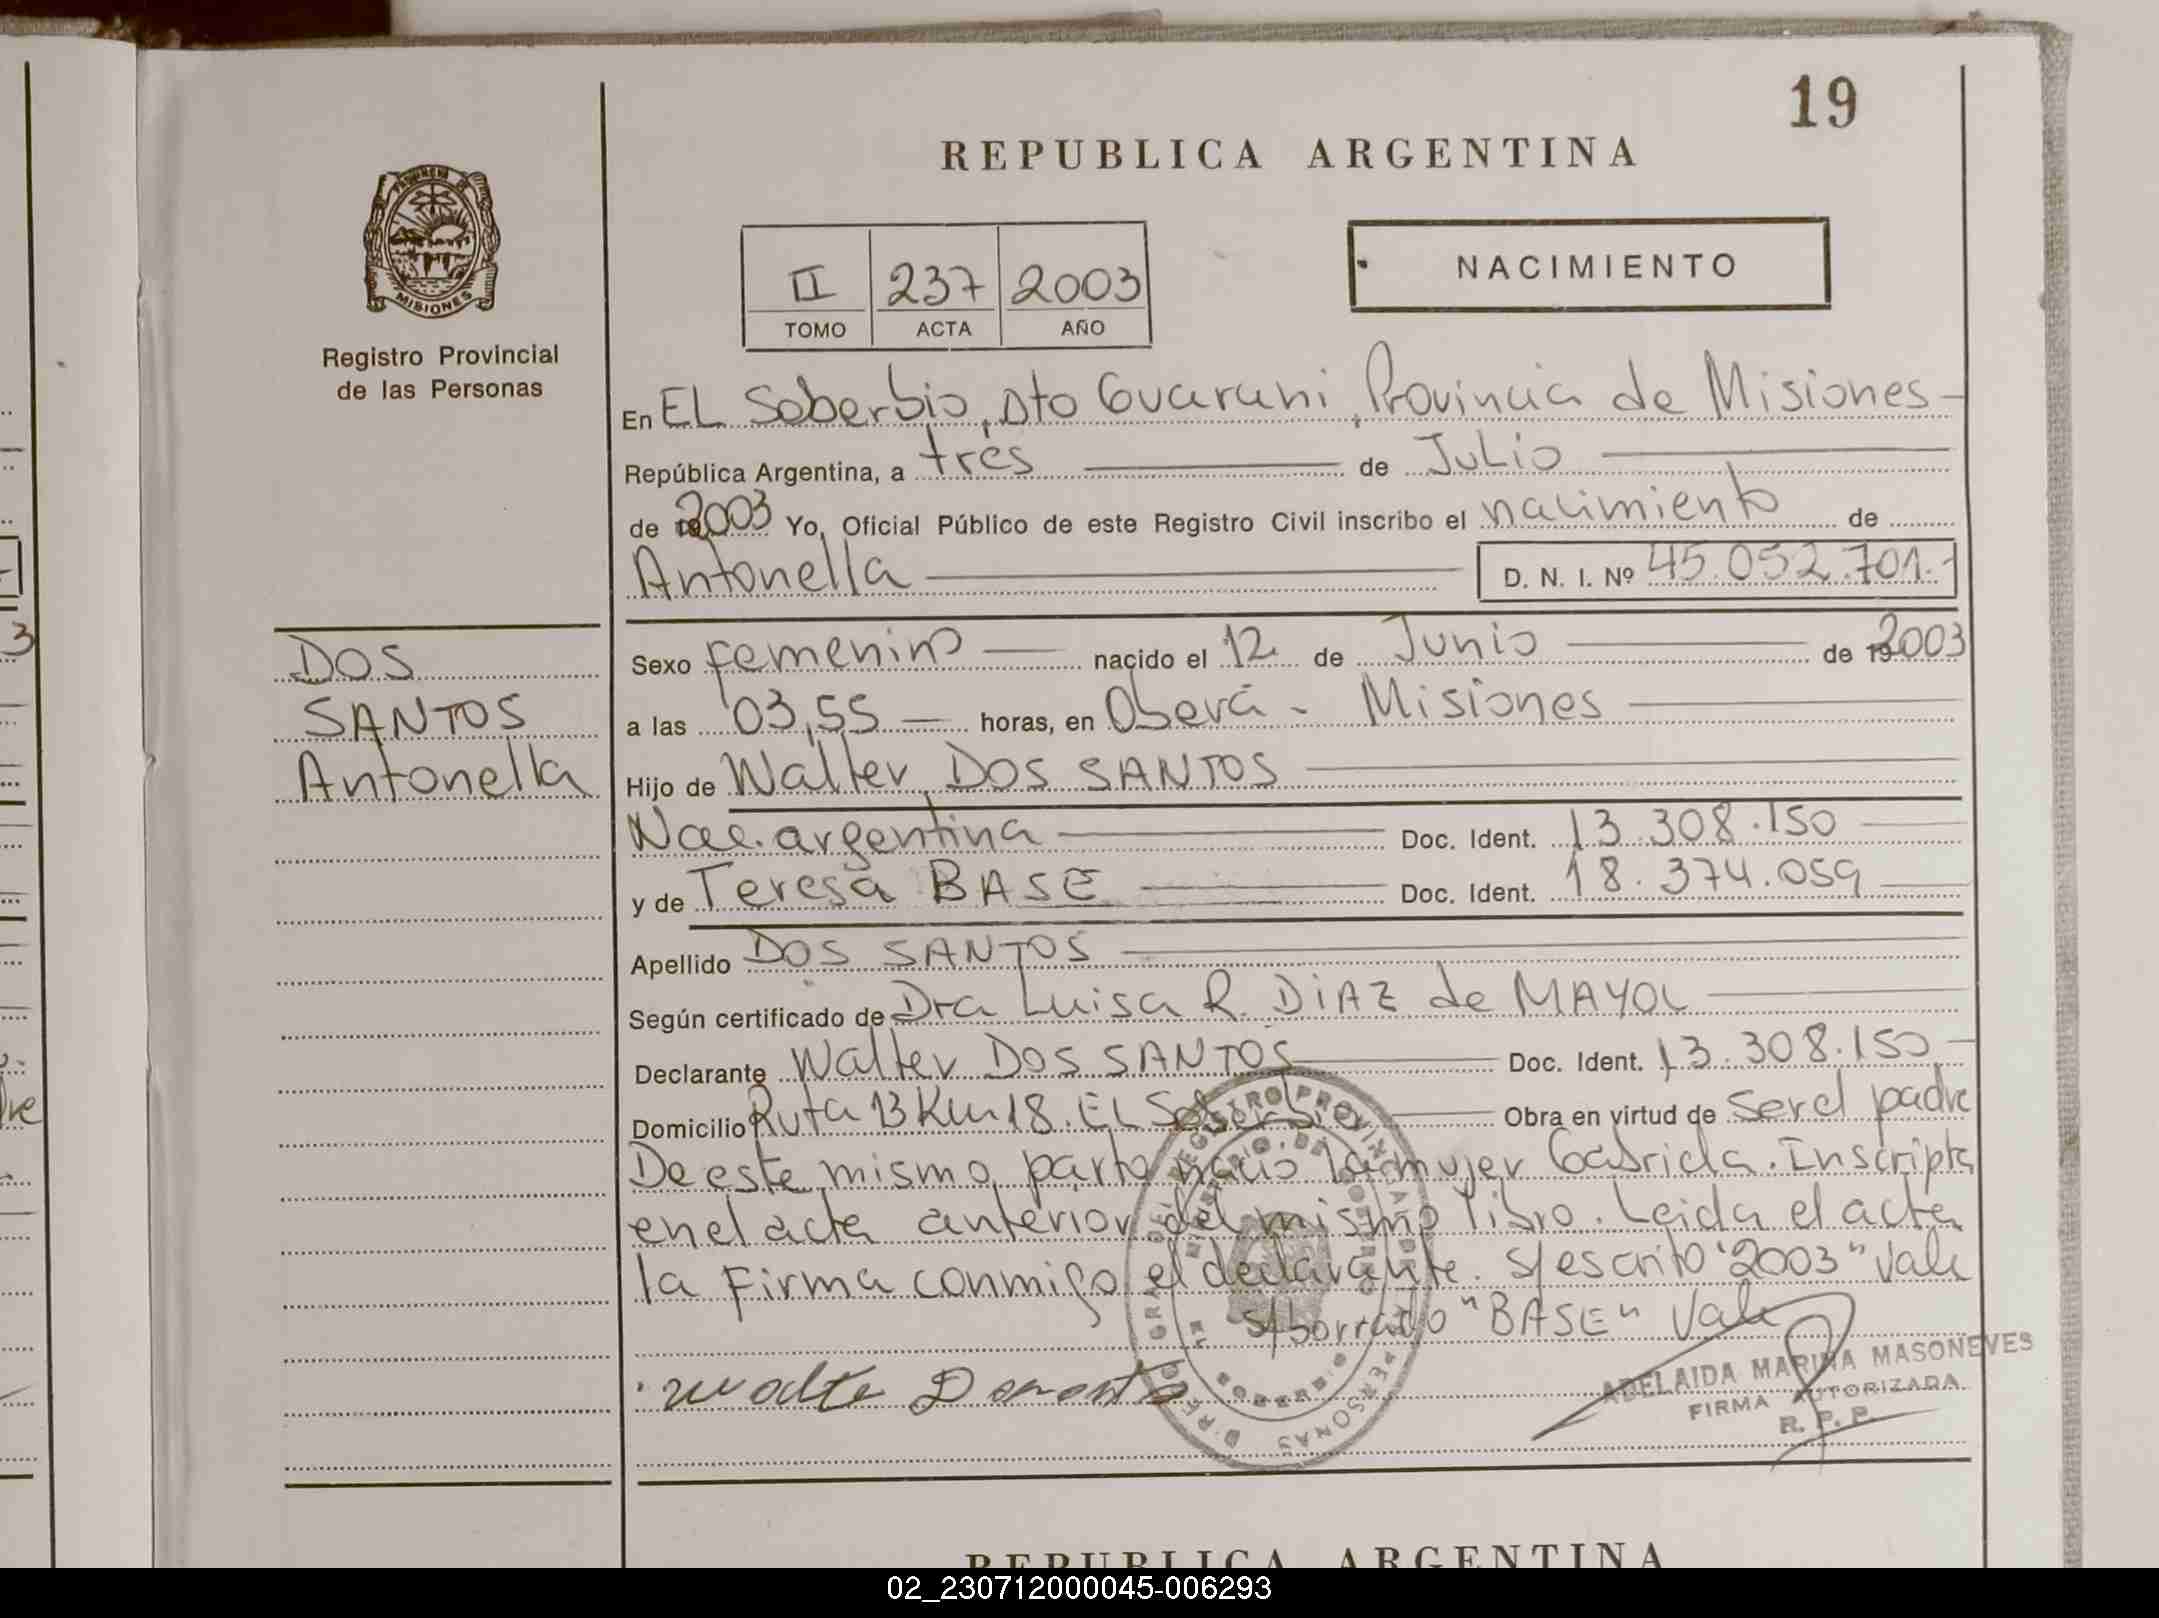 19
REPUBLICA ARGENTINA
PROVINCIA DE
MISIONES
Registro Provincial
de las Personas
II 237 2003
TOMO ACTA AÑO
NACIMIENTO
En EL Soberbio, Dto Guarani, Provincia de Misiones
República Argentina, a tres de Julio
de 2003 Yo, Oficial Público de este Registro Civil inscribo el nacimiento de
Antonella D. N. I. Nº 45.052.701.-
DOS
SANTOS
Antonella
Sexo femenino nacido el 12 de Junio de 2003
a las 03,55 horas, en Oberá - Misiones
Hijo de Walter DOS SANTOS
Nac. argentina Doc. Ident. 13.308.150
y de Teresa BASE Doc. Ident. 18.374.059
Apellido DOS SANTOS
Según certificado de Dra Luisa R. DIAZ de MAYOL
Declarante Walter DOS SANTOS Doc. Ident. 13.308.150
Domicilio Ruta 13 Km 18. EL Soberbio Obra en virtud de ser el padre
De este mismo parto nacio la mujer Gabriela. Inscripta
en el acta anterior del mismo libro. Leida el acta
la firma conmigo el declarante. s/escrito "2003" vale
s/borrado "BASE" Vale
ADELAIDA MARINA MASONEVES
FIRMA AUTORIZADA
R. P. P.
REPUBLICA ARGENTINA
02_230712000045-006293